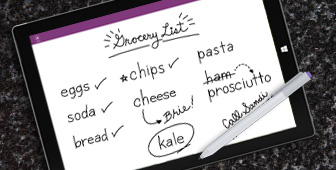 Grocery List
eggs
soda
bread
chips
cheese
Brie!
kale
pasta
ham
prosciutto
Call Sandi